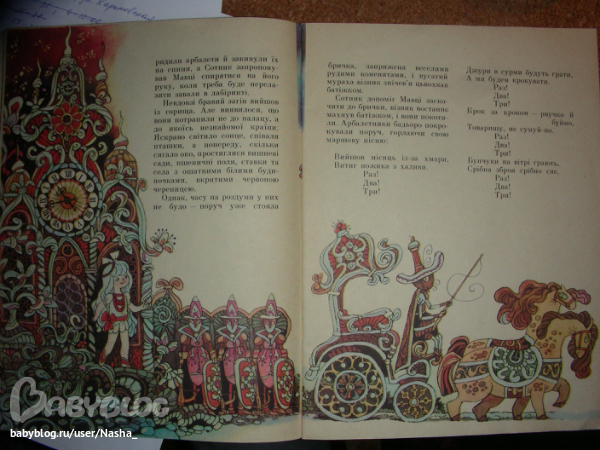 радали арбалети й закинули їх
на спини, а Сотник запропону-
вав Мавці спиратися на його
руку, коли треба буде перела-
зити завали в лабіринті.
Невдовзі бравий загін вийшов
із горища. Але виявилося, що
вони потрапили не до палацу, а
до якоїсь незнайомої країни.
Яскраво світило сонце, співали
пташки, а попереду, скільки
сягало око, простяглися вишневі
сади, пшеничні поля, ставки та
села з ошатними білими буди-
ночками, вкритими червоною
черепицею.
Однак, часу на роздуми у них
не було — поруч уже стояла
бричка, запряжена веселими
рудими конячатами, і вусатий
мураха візник звичєв'я цьвохкав
батіжком.
Сотник допоміг Мавці заско-
чити до брички, візник востаннє
махнув батіжком, і вони покоти-
ли. Арбалетники бадьоро покро-
кували поруч, горлаючи свою
маршову пісню:
Вийшов місяць із-за хмари,
Витяг ножика з халяви.
Раз!
Два!
Три!
Джури в сурми будуть грати,
А ми будем крокувати.
Раз!
Два!
Три!
Крок за кроком — рвучко й
буйно,
Товаришу, не сумуй-но.
Раз!
Два!
Три!
Бунчуки на вітрі грають,
Срібна зброя срібно сяє.
Раз!
Два!
Три!
BABYBLOG
babyblog.ru/user/Nasha_